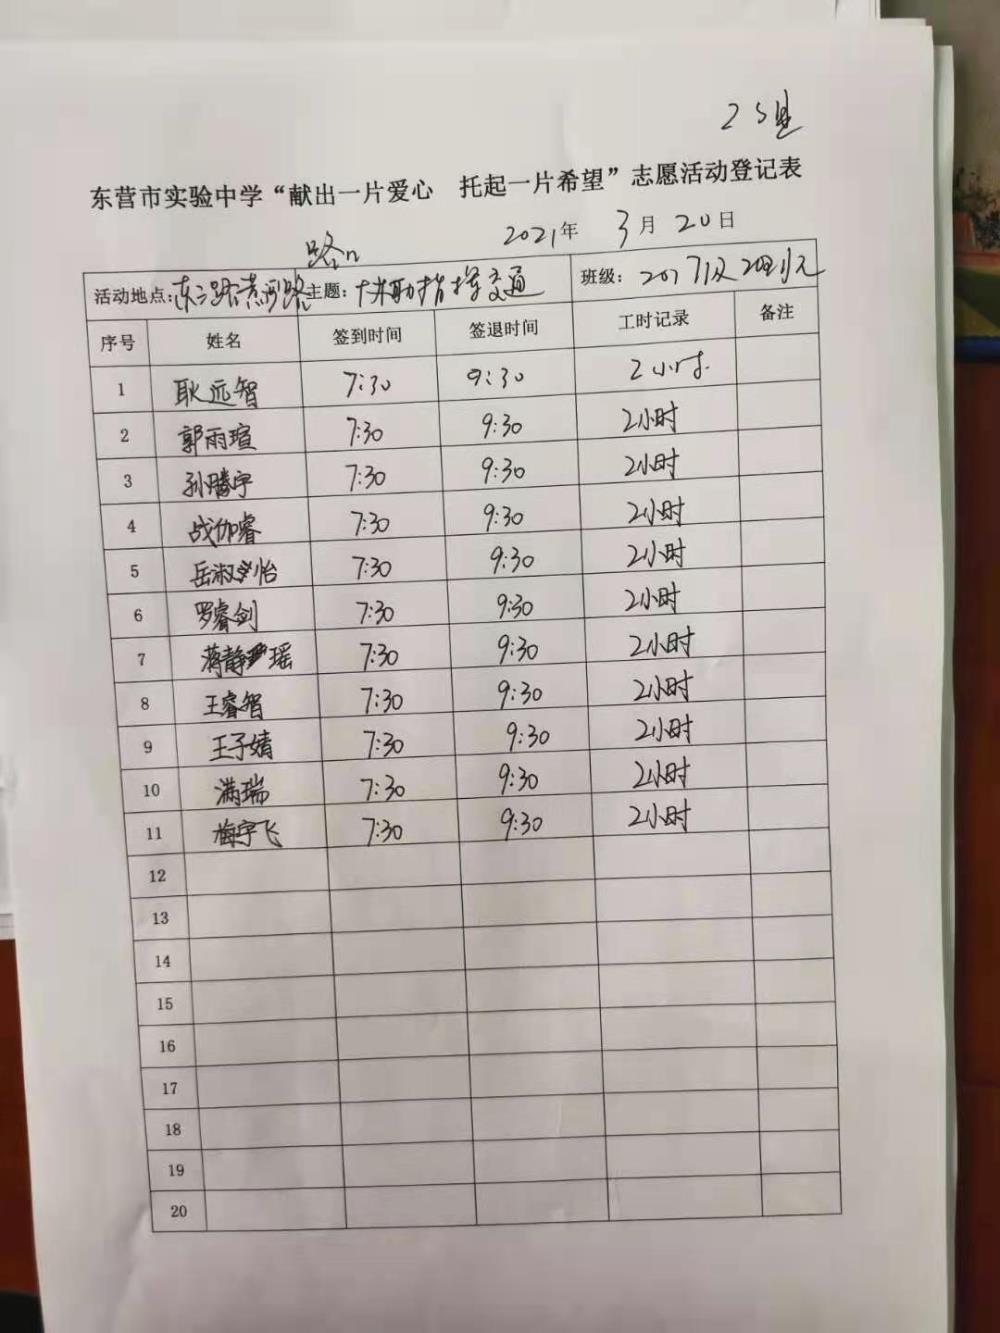 25组
东营市实验中学“献出一片爱心 托起一片希望”志愿活动登记表
2021年 3月 20日
路口
活动地点：东二路黄河路 主题：协助指挥交通 班级：2017级
序号 姓名 签到时间 签退时间 工时记录 备注
1 耿远智 7:30 9:30 2小时.
2 郭雨瑄 7:30 9:30 2小时
3 孙腾宇 7:30 9:30 2小时
4 战伽睿 7:30 9:30 2小时
5 岳淑怡 7:30 9:30 2小时
6 罗睿剑 7:30 9:30 2小时
7 蒋静瑶 7:30 9:30 2小时
8 王睿智 7:30 9:30 2小时
9 王子婧 7:30 9:30 2小时
10 满瑞 7:30 9:30 2小时
11 梅宇飞 7:30 9:30 2小时
12
13
14
15
16
17
18
19
20